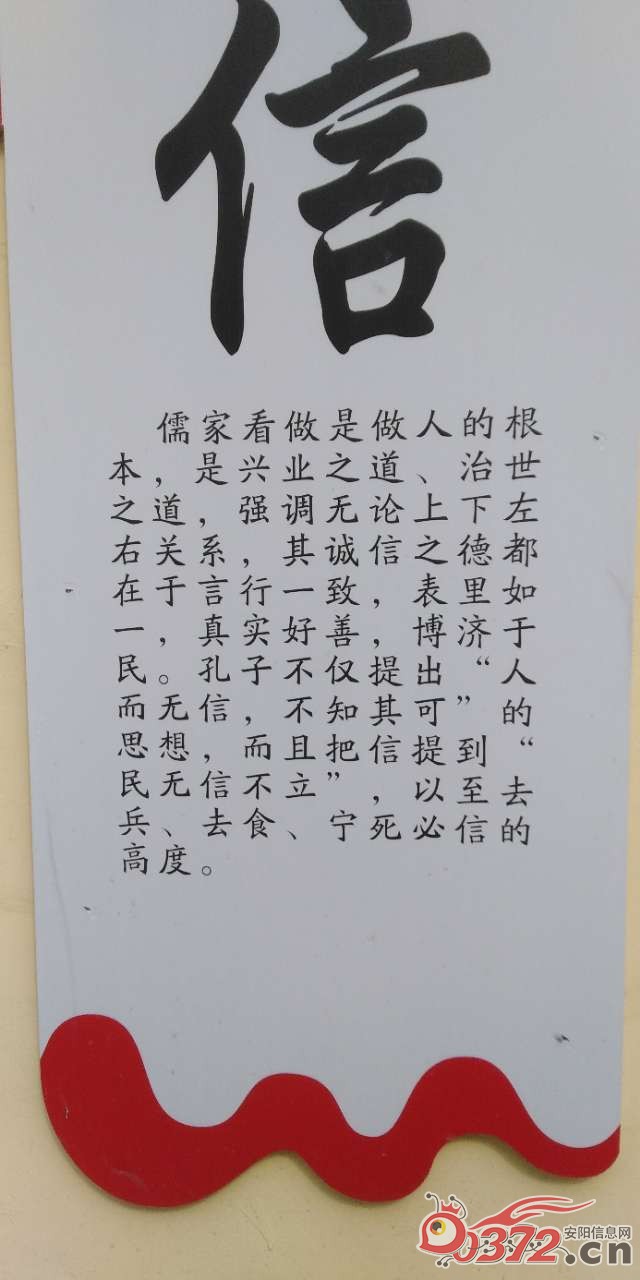 信
儒家看做是做人的根
本，是兴业之道、治世
之道，强调无论上下左
右关系，其诚信之德都
在于言行一致，表里如
一，真实好善，博济于
民。孔子不仅提出“人
而无信，不知其可”的
思想，而且把信提到“
民无信不立”，以至去
兵、去食、宁死必信的
高度。
安阳信息网
0372.cn